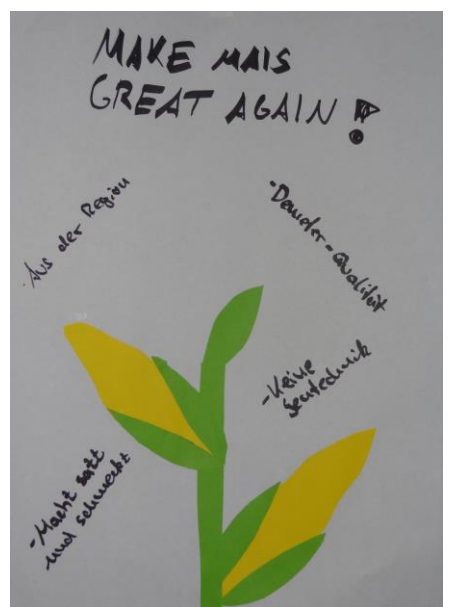 MAKE MAIS
GREAT AGAIN!
·Aus der Region
-Qualität
-Keine
Gentechnik
-Macht satt
und schmeckt